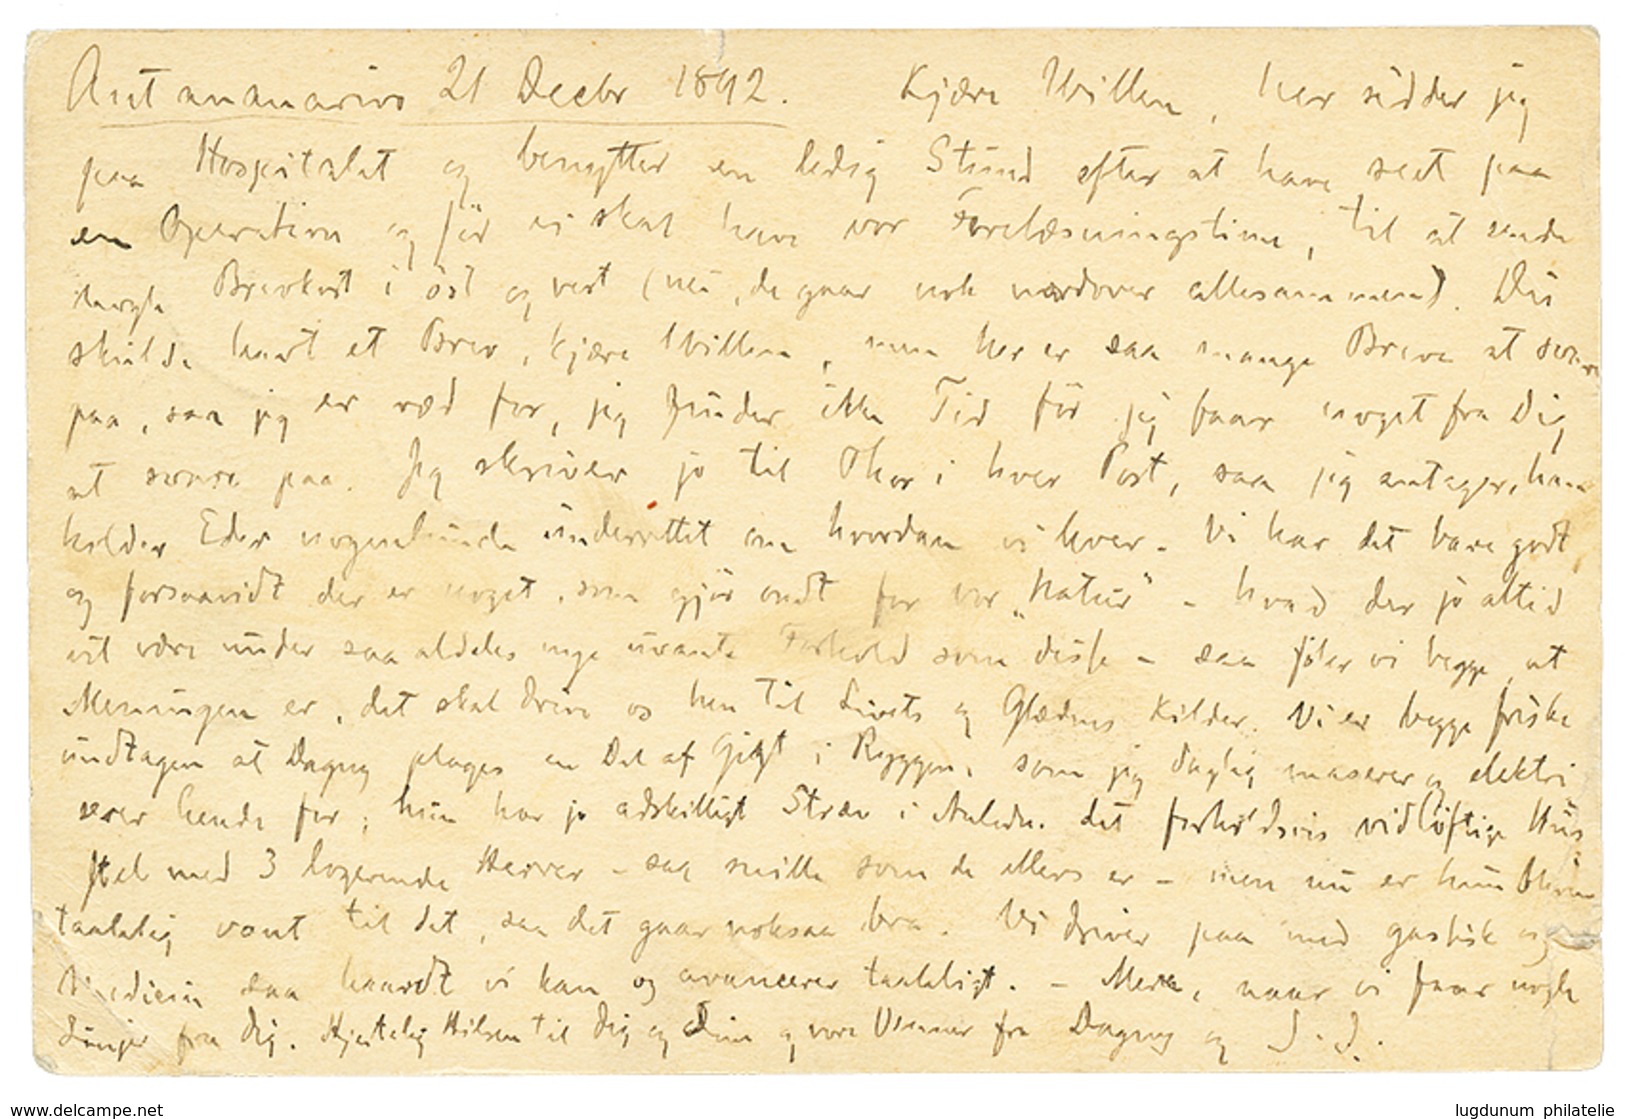 Antananarivo 21 Decbr 1892. Kjære Willem, her sidder jeg
paa Hospitalet og benytter en ledig Stund efter at have seet paa
en Operation og før vi skal have vor Forelæsningstime, til at sende
nogle Brevkort i öst og vest (nei, de gaar nok nordover allesammen). Du
skulde havt et Brev, kjære Willem, men her er saa mange Breve at svare
paa, saa jeg er ræd for, jeg finder ikke Tid för jeg faar noget fra Dig
at svare paa. Jeg skriver jo til Thor i hver Post, saa jeg antager, han
holder Eder nogenlunde underrettet om hvordan vi lever. Vi har det bare godt
og forsaavidt der er noget, som gjör ondt for vor „Natur" – hvad der jo altid
vil være under saa aldeles nye uvante Forhold som disse – saa föler vi begge, at
Meningen er, det skal drive os hen til Livets og Glædens Kilder. Vi er begge friske
undtagen at Dagny plages en Del af Gigt i Ryggen, som jeg daglig maserer og elektri
serer hende for; hun har jo adskilligt Stræv i Anledn. det forholdsvis vidlöftige Hus
stel med 3 logerende Herrer – saa snille som de ellers er – men nu er hun bleven
taalelig vant til det, saa det gaar noksaa bra. Vi driver paa med gassisk og
Medicin saa haardt vi kan og avancerer taaleligt. – Mere, naar vi faar nogle
Linjer fra Dig. Hjertelig Hilsen til Dig og Din og vore Venner fra Dagny og J. J.
www.delcampe.net
lugdunum philatelie